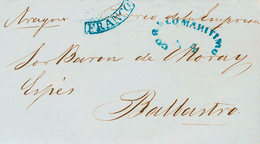 Aragon Correo de la Empresa
FRANCO
CORREO MARITIMO
Sor Baron de Moray
Lipés
Ballastro